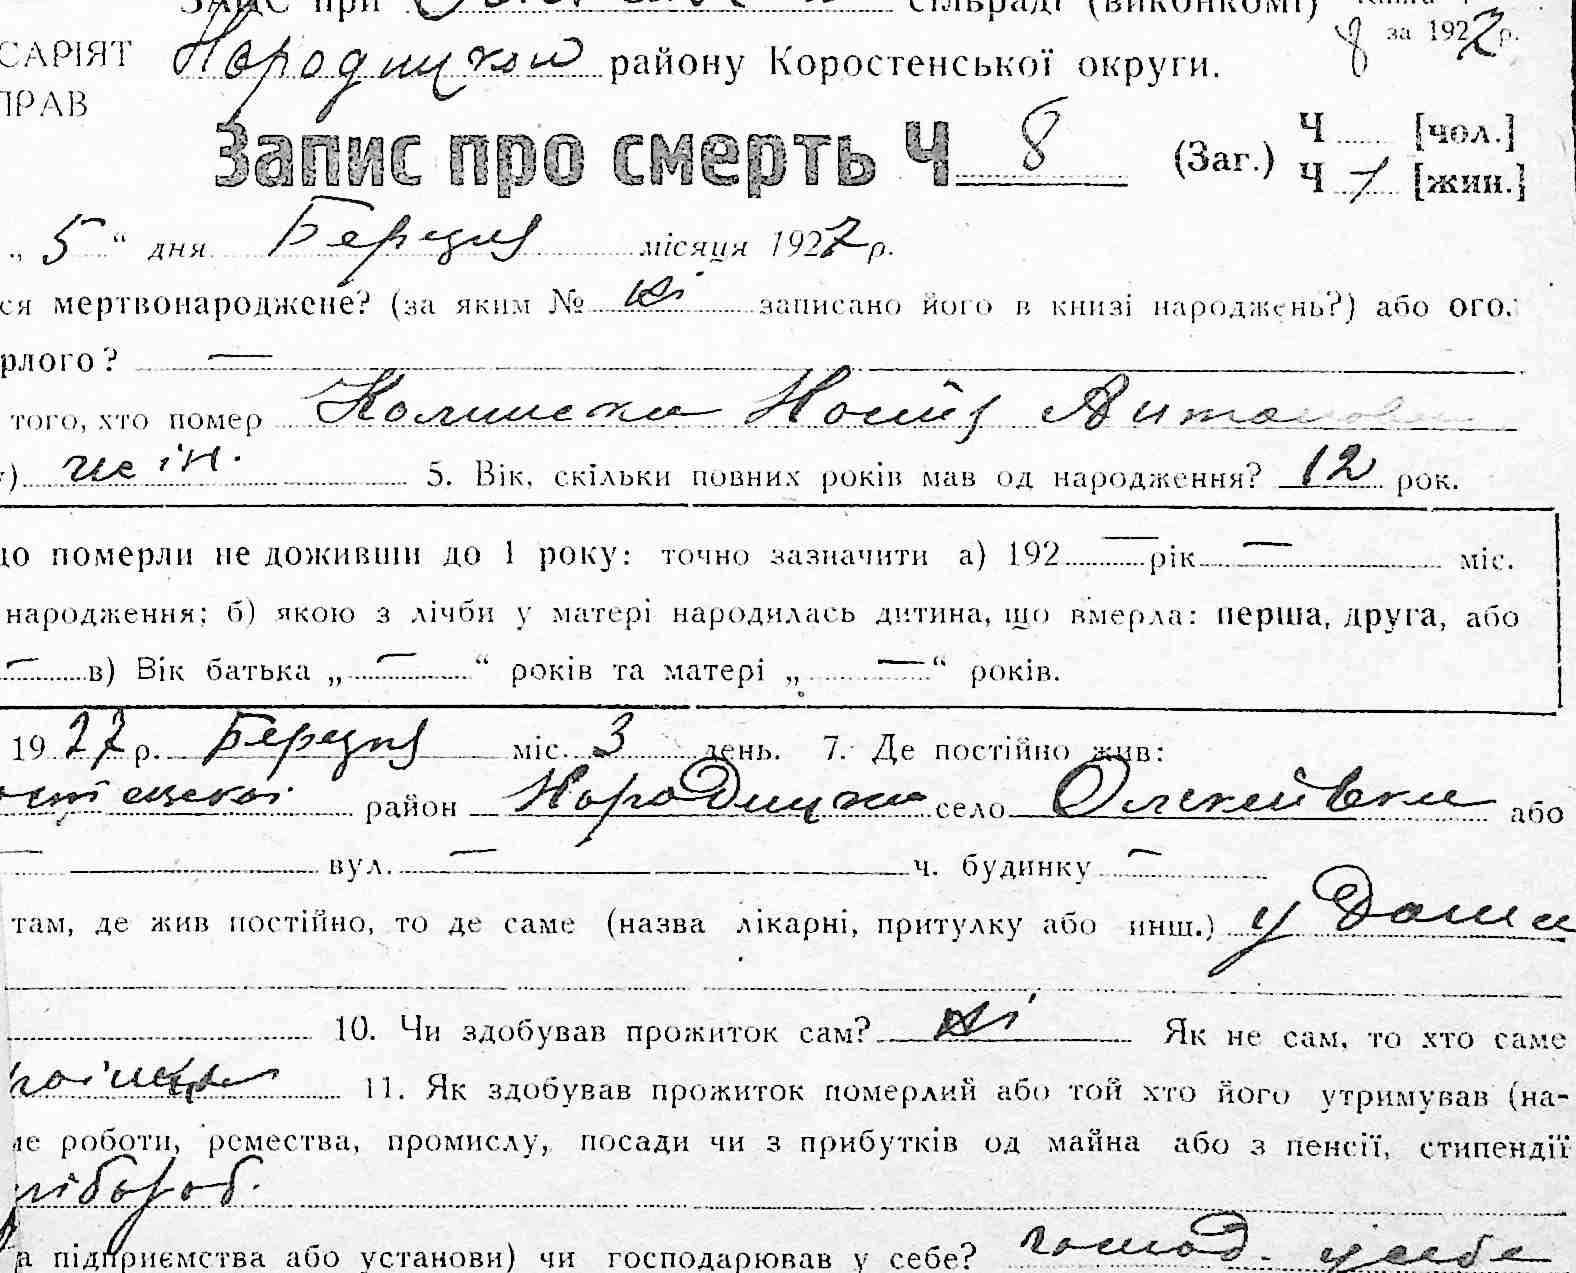 ЗАПИС при сільраді (виконкомі)
САРІЯТ Народицкой району Коростенської округи. 8 за 1927 р.
ПРАВ
Запис про смерть Ч 8 (Заг.) Ч [чол.]
Ч 1 [жин.]
„ 5 “ дня Березня місяця 1927 р.
ся мертвонароджене? (за яким № ні записано його в книзі народжень?) або ого.
рлого? —
того, хто помер
) жін. 5. Вік, скільки повних років мав од народження? 12 рок.
що померли не доживши до 1 року: точно зазначити а) 192 — рік — міс.
народження; б) якою з лічби у матері народилась дитина, що вмерла: перша, друга, або
— в) Вік батька „ — “ років та матері „ — “ років.
1927 р. Березня міс. 3 день. 7. Де постійно жив:
район село або
— вул. — ч. будинку —
там, де жив постійно, то де саме (назва лікарні, притулку або инш.) у Дома
10. Чи здобував прожиток сам? ні Як не сам, то хто саме
11. Як здобував прожиток померлий або той хто його утримував (на-
ме роботи, ремества, промислу, посади чи з прибутків од майна або з пенсії, стипендії
лібороб.
а підприємства або установи) чи господарював у себе? господ. у себе